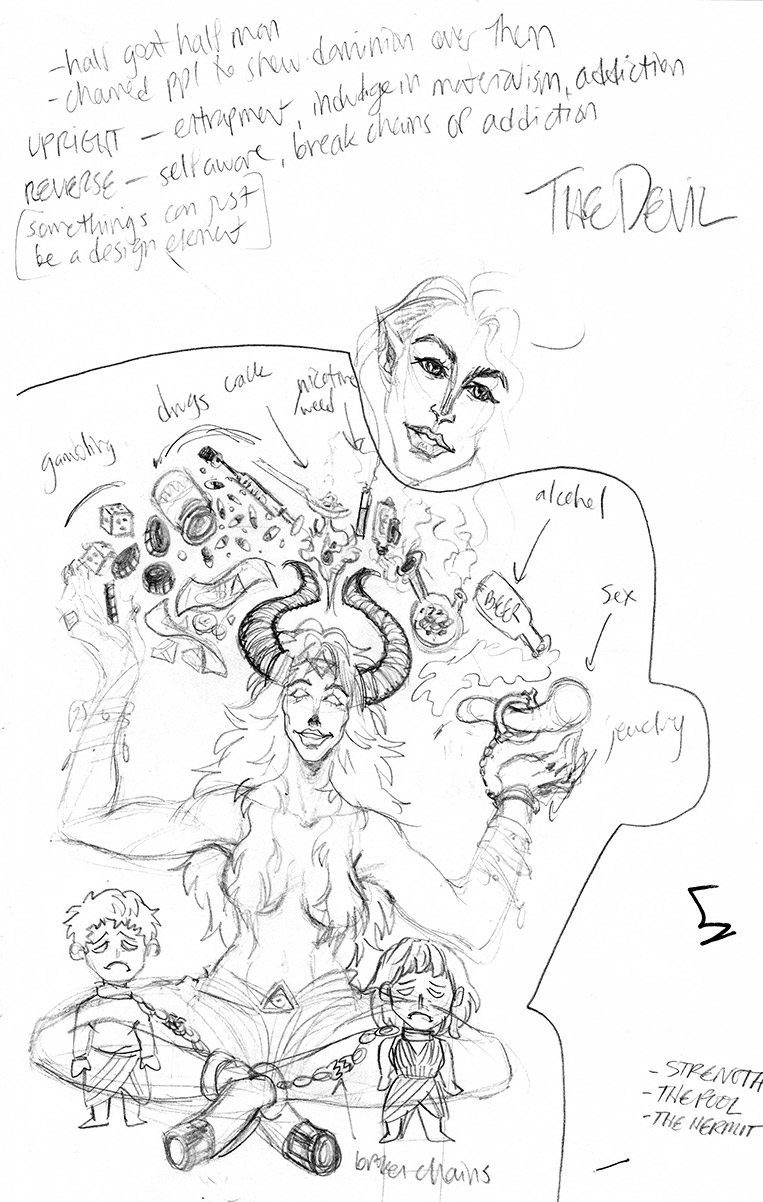 - half goat half man
- chained ppl to show dominion over them
UPRIGHT - entrapment, indulge in materialism, addiction
REVERSE - self aware, break chains of addiction
somethings can just
be a design element
THE DEVIL
drugs crack nicotine
/weed
gambling
alcohol
BEER
sex
jewelry
broken chains
- STRENGTH
- THE FOOL
- THE HERMIT